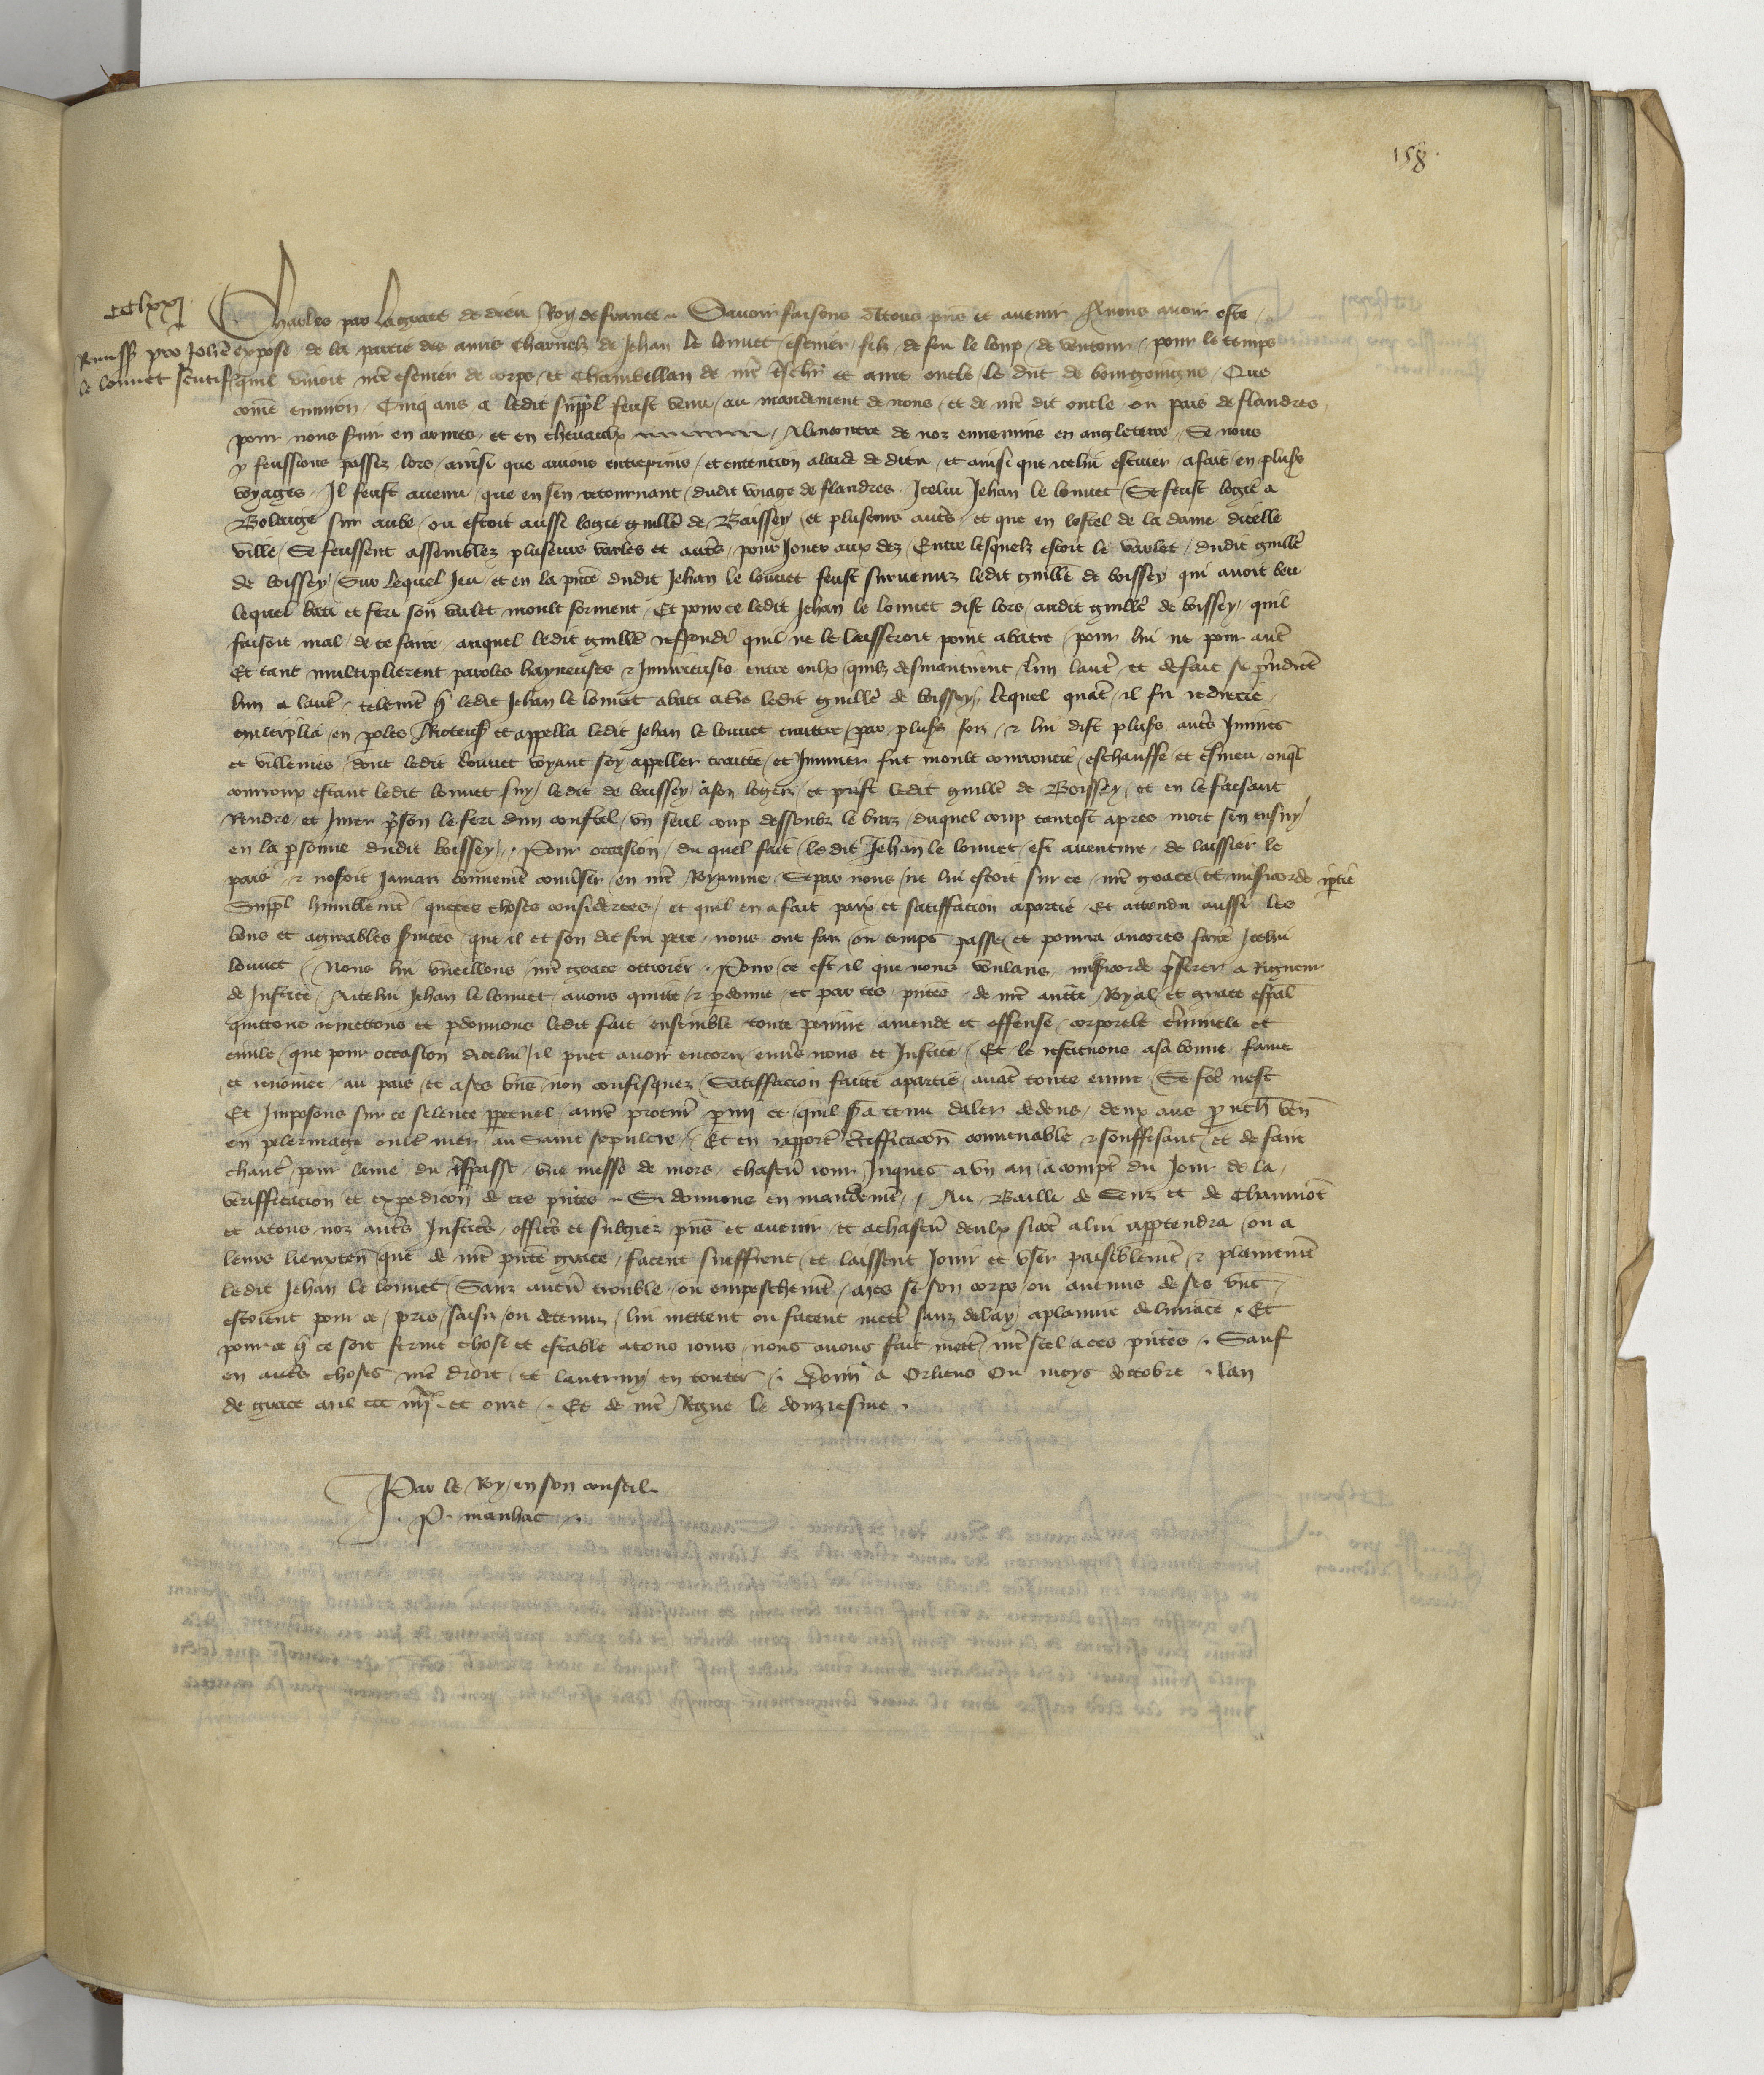 158.
CClxxj
Remissio pro Johane
le Louuet scutiff
Charles par la grace de dieu Roy de france. Sauoir faisons a tous pns et auenir A nous auoir este
expose de la partie des amis charnelz de Jehan le Louuet escuier filz de feu le loup de ventour pour le temps
quil viuoit nre escuier de corps et Chambellan de nre tschr et ame oncle le duc de bourgoingne Que
come enuiron Cinq ans a ledit suppl feust venu au mandement de nous et de nre dit oncle ou pais de flandres
pour nous suir en armes et en cheuaulx alencontre de noz ennemis en angleterre Se nous
y feussions passez lors ainsi que auions entreprins et entencion alaide de dieu et ainsi que icelui escuier a fait en plusrs
voyages Il feust auenu que en sen retournant dudit voiage de flandres Icelui Jehan le Louuet Se feust logie a
sur aube ou estoit aussi logie guille de Boissey et pluseurs autrs et que en lostel de la dame dicelle
ville Se feussent assemblez pluseurs varles et autrs pour Jouer aux dez Entre lesquelz estoit le varlet dudit guille
de boissey Sur lequel Jeu et en la pnce dudit Jehan le louuet feust suruenuz ledit guille de boissey qui auoit beu
lequel bati et feri son varlet moult forment Et pour ce ledit Jehan le Louuet dist lors audit guille de boissey quil
faisoit mal de ce faire auquel ledit guille respondi quil ne le laisseroit point a batre pour lui ne pour autre
Et tant multiplierent paroles hayneuses et Iniurieuses entre eulx quilz desmantirent lun lautre et de fait se prindrent
lun a lautre telemt que ledit Jehan le louuet abati a tre ledit guille de boissey lequel quant il fu redrecie
multiplia en poles Rioteuses et appella ledit Jehan le louuet traittre par plusrs foiz et lui dist plusrs autrs Iniures
et villenies dont ledit Louuet voyant soy appeller traittre et Iniurier fut moult courroucie eschauffe et esmeu ouquel
courroux estant ledit louuet suy ledit de boissey a son logeiz et prist ledit guille de Boissey et en le faisant
Rendre et Jurer prson le feri dun coustel vn seul coup dessoubz le braz duquel coup tantost apres mort sen ensuy
en la personne dudit boissey. Pour occasion du quel fait ledit Jehan le louuet est auenture de laissier le
pais et nosoit Jamaiz bonnement conuerser en nre Royaume Se par nous ne lui estoit sur ce nre grace et misericorde iptie
Suppl humblement que ces choses considerees et quil en a fait paix et satisfacion a partie Et attendu aussi les
bons et agreables seruices que il et son dit feu pere nous ont faiz ou temps passe et pourra encores faire Icelui
louuet Nous lui vueillons nre grace ottroier. Pour ce est il que nous voulans misericorde preferer a Rigueur
de Justice A icelui Jehan le louuet auons quitte et pardonne et par ces pntes de nre aucte Royal et grace espal
quittons remettons et pdonnons ledit fait ensemble toute peine amende et offense corporele criminele et
ciuile que pour occasion dicelui il puet auoir encoru enuers nous et Justice Et le restituons a sa bonne fame
et renomee au pais et a ses biens non confisquez Satisfacion faicte a partie auant toute euure Se fce nest
Et Imposons sur ce silence perpetuel a nre procureur parmi ce quil sera tenu daler dedens deux ans prouch ven
en pelerinage oultre mer au Saint sepulcre Et en rapporter certifficacion conuenable et souffisant et de faire
chanter pour lame du trespasse vne messe de mors chascun iour Jusques a vn an a compter du Jour de la
verifficacion et expedicion de ces pntes. Si donnons en mandement Au Bailli de Senz et de Chaumont
et a tous noz autrs Justiciers officiers et subgiez pns et auenir et a chascun deulx sicome a lui appartendra ou a
leurs lieuxten que de nre pnte grace facent sueffrent et laissent Jouir et vser paisiblement et plainement
ledit Jehan le louuet Sanz aucun trouble ou empeschement mes se son corps ou aucuns de ses biens
estoient pour ce pris saisiz ou detenuz lui mettent ou facent mettre sanz delay a plainne deliurance. Et
pour ce que ce soit ferme chose et estable a tous iours nous auons fait mettre nre seel a ces pntes. Sauf
en autrs choses nre droit et lautruy en toutes. Donn a Orliens Ou moys doctobre. Lan
de grace mil ccc iiijxx et onze. Et de nre Regne le douziesme.
Par le Roy en son conseil
P. manhac